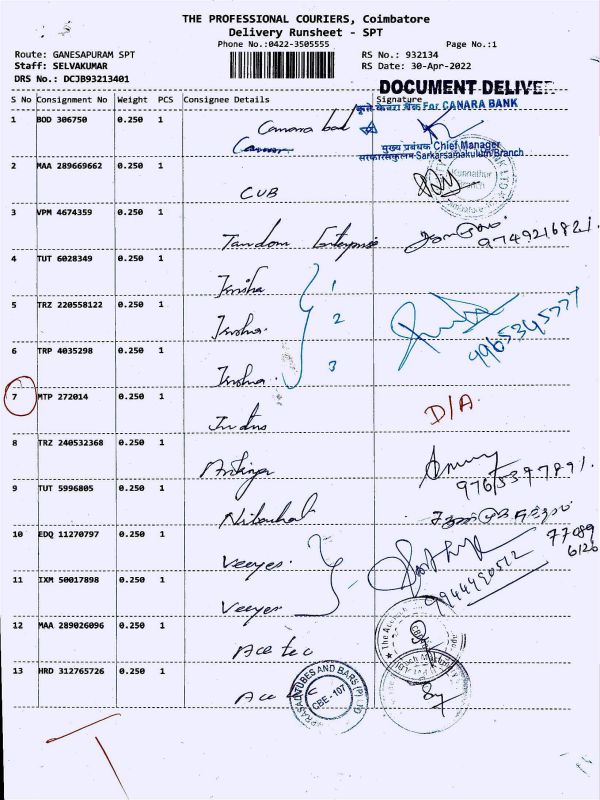 THE PROFESSIONAL COURIERS, Coimbatore
Delivery Runsheet - SPT
Phone No.:0422-3505555 Page No.:1
Route: GANESAPURAM SPT RS No.: 932134
Staff: SELVAKUMAR RS Date: 30-Apr-2022
DRS No.: DCJB93213401
DOCUMENT DELIVER
S No Consignment No Weight PCS Consignee Details Signature
For CANARA BANK
1 BOD 306750 0.250 1
मुख्य प्रबंधक Chief Manager
Sarkarsamakulam Branch
2 MAA 289669662 0.250 1 CUB
3 VPM 4674359 0.250 1 Tandom Enterprise
9749216821
4 TUT 6028349 0.250 1 Krisha 1
5 TRZ 220558122 0.250 1 Krisha 2
9965345777
6 TRP 4035298 0.250 1 Krisha 3
7 MTP 272014 0.250 1 Indus D/A.
8 TRZ 240532368 0.250 1
9765397891.
9 TUT 5996805 0.250 1
10 EDQ 11270797 0.250 1 Veeyes
77089
6126
11 IXM 50017898 0.250 1 Veeyes
9944490512
12 MAA 289026096 0.250 1 Ace tec
13 HRD 312765726 0.250 1 Ace tec
PRASAD TUBES AND BARS (P) LTD
CBE - 107